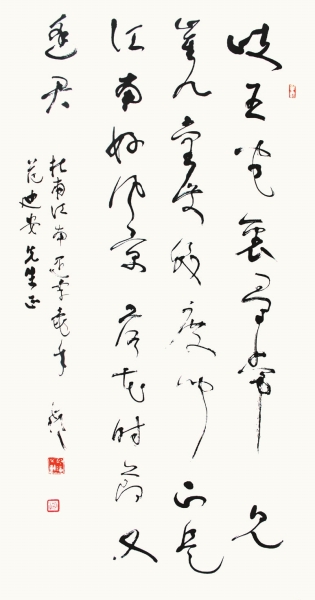 岐王宅裏尋常見
崔九堂前幾度聞正是
江南好風景落花時節又
逢君
杜甫江南逢李龜年
范迪安先生正